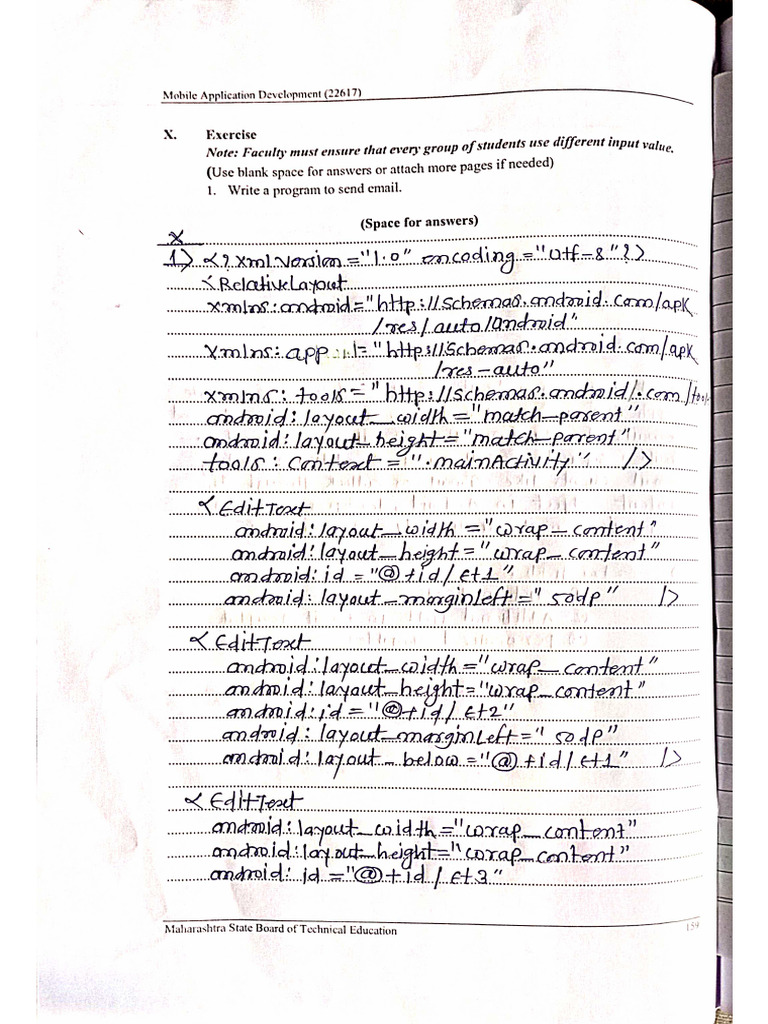 Mobile Application Development (22617)
X. Exercise
Note: Faculty must ensure that every group of students use different input value.
(Use blank space for answers or attach more pages if needed)
1. Write a program to send email.
(Space for answers)
X
1> <?xml version="1.0" encoding="utf-8"?>
<RelativeLayout
xmlns:android="http://schemas.android.com/apk
/res/auto/android"
xmlns:app="http://schemas.android.com/apk
/res-auto"
xmlns:tools="http://schemas.android/.com/tools
android:layout_width="match-parent"
android:layout_height="match-parent"
tools:context=".mainActivity" />
<EditText
android:layout_width="wrap_content"
android:layout_height="wrap_content"
android:id="@+id/et1"
android:layout_marginLeft="50dp" />
<EditText
android:layout_width="wrap_content"
android:layout_height="wrap_content"
android:id="@+id/et2"
android:layout_marginLeft="50dp"
android:layout_below="@+id/et1" />
<EditText
android:layout_width="wrap_content"
android:layout_height="wrap_content"
android:id="@+id/et3"
Maharashtra State Board of Technical Education
159